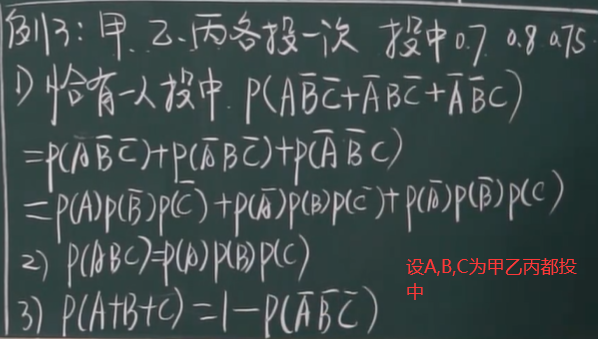 例3: 甲、乙、丙各投一次 投中0.7 0.8 0.75
1) 恰有一人投中. P(AB̅C̅+A̅BC̅+A̅B̅C)
=P(AB̅C̅)+P(A̅BC̅)+P(A̅B̅C)
=P(A)P(B̅)P(C̅)+P(A̅)P(B)P(C̅)+P(A̅)P(B̅)P(C)
2) P(ABC)=P(A)P(B)P(C)
3) P(A+B+C)=1-P(A̅B̅C̅)
设A,B,C为甲乙丙都投
中